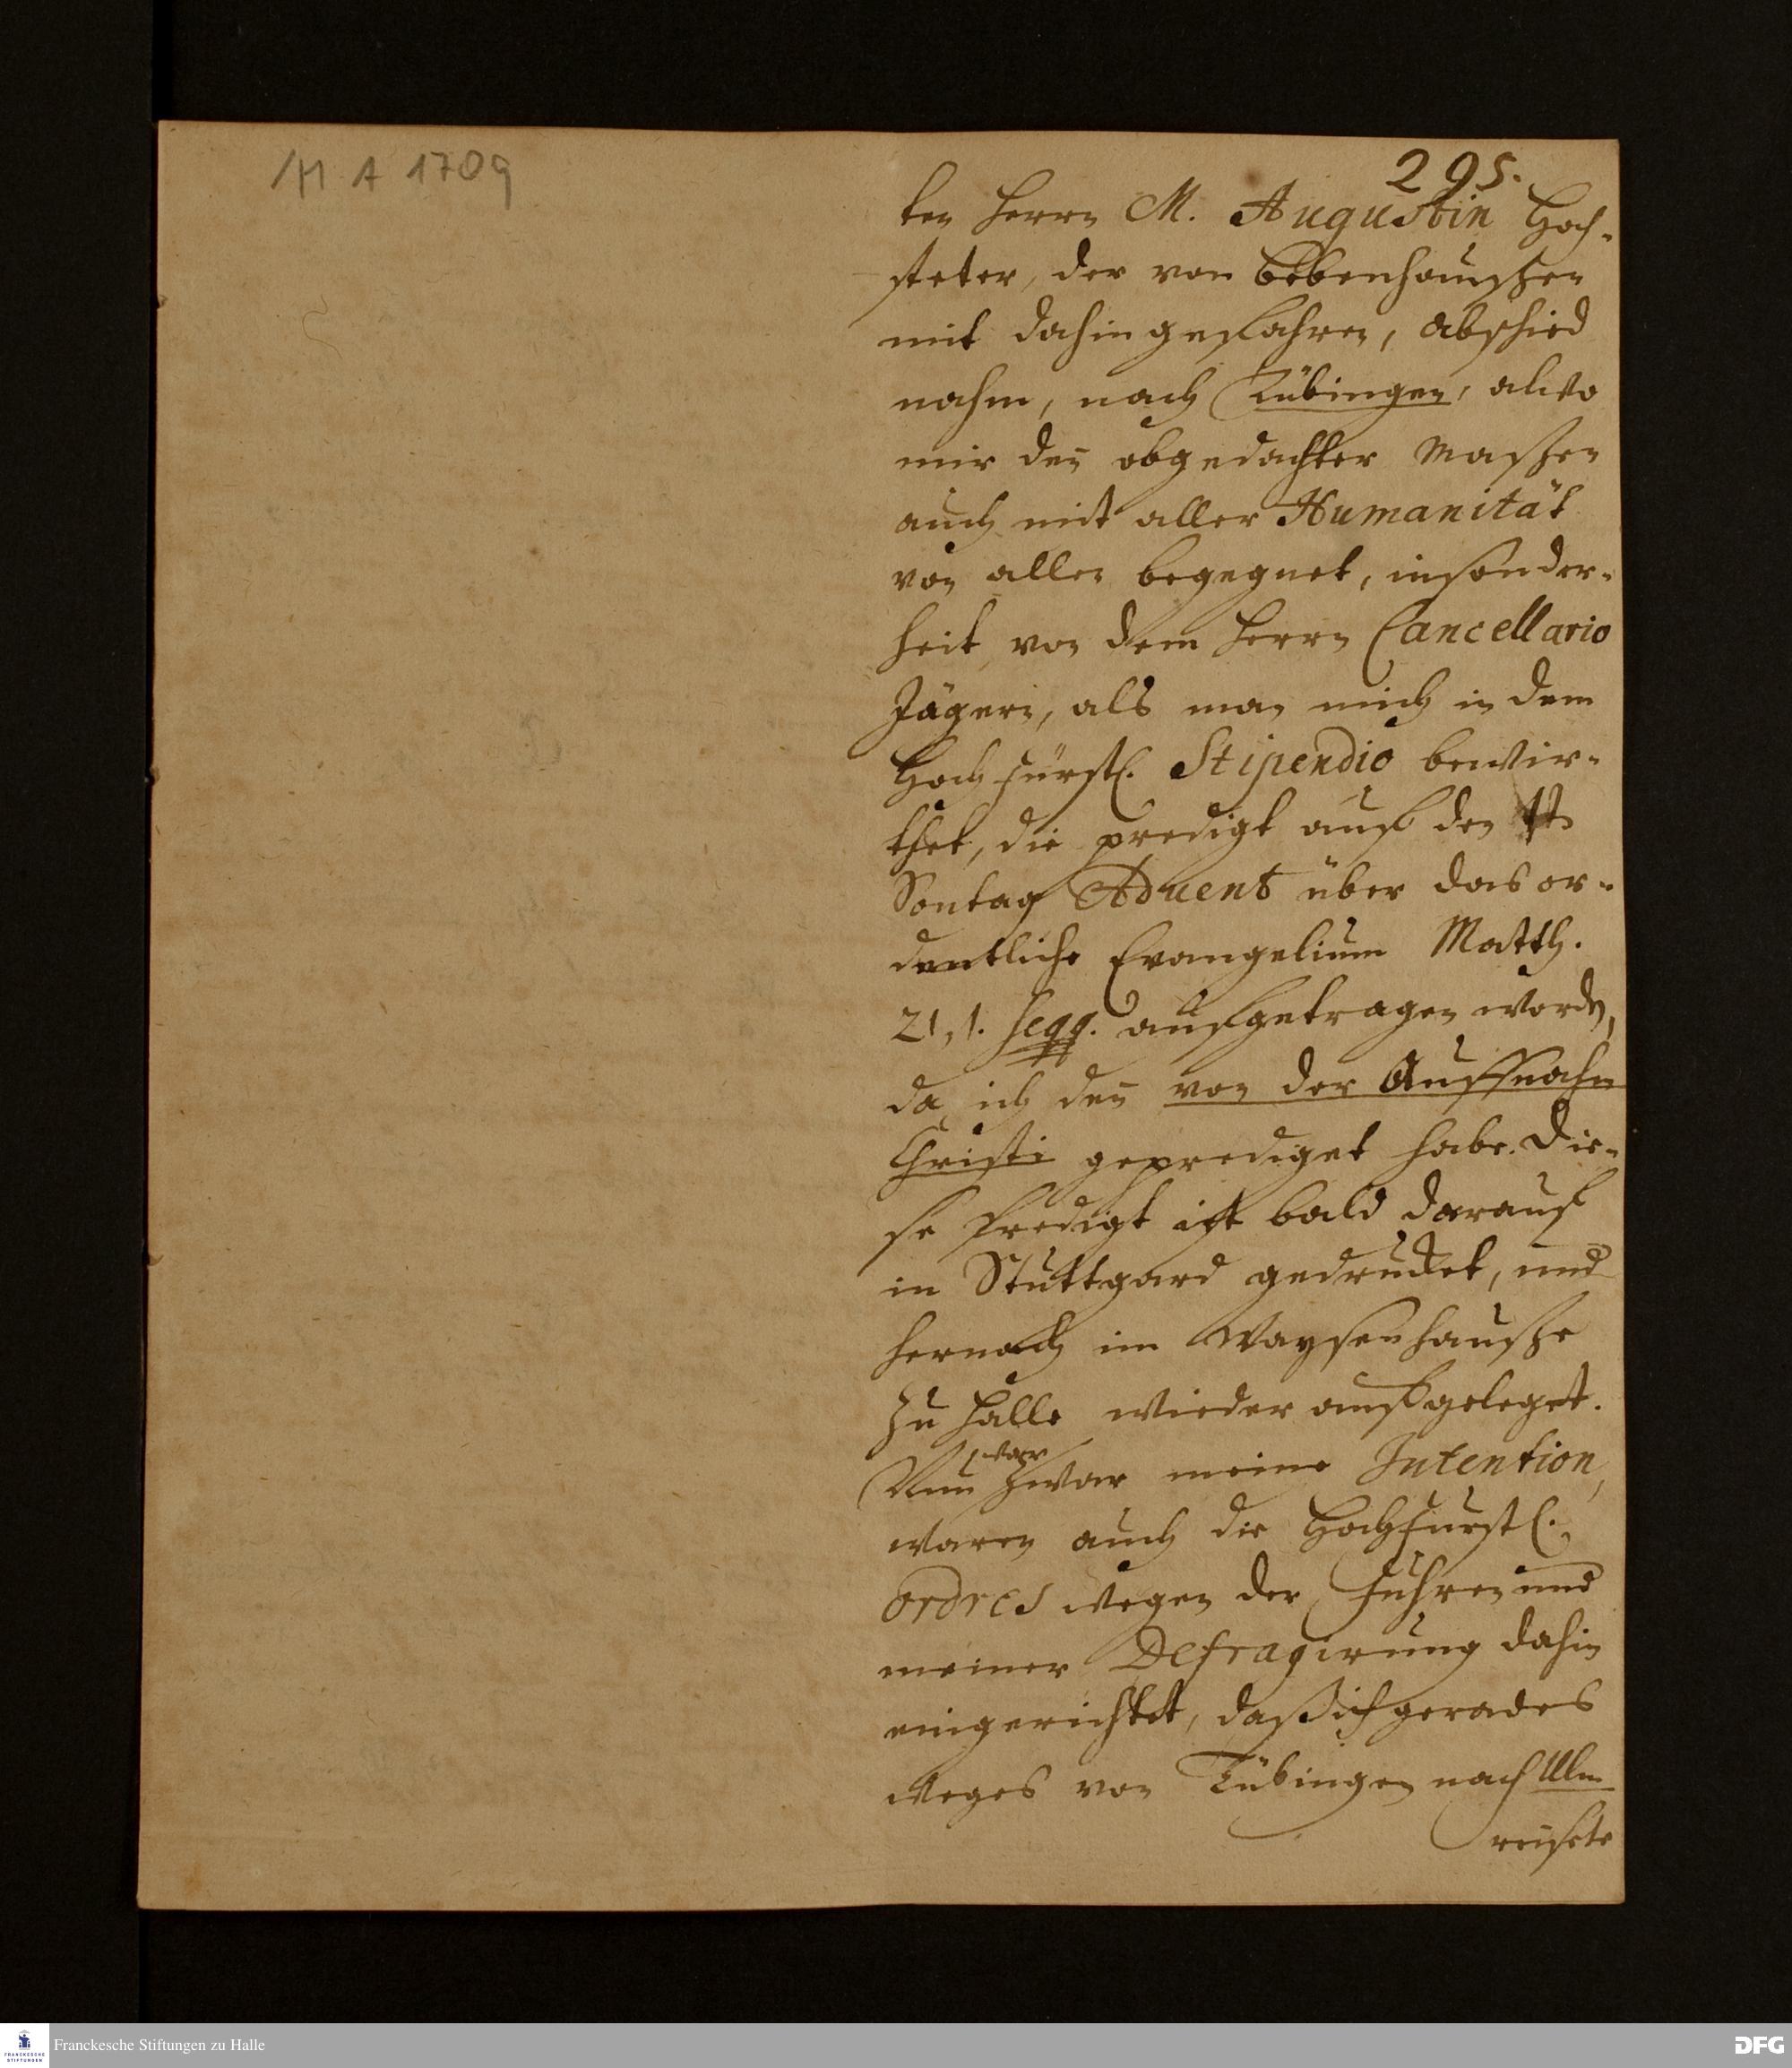 /H A 1709
295.
ten Herrn M. Augustin Hoch-
steter, der von Bebenhausen
mit dahin gefahren, Abschied
nahm, nach Tübingen, alwo
mir deñ obgedachter Maßen
auch mit aller Humanität
von allen begegnet, insonder-
heit von dem Herrn Cancellario
Jägern, als man mich in dem
Hochfürstl. Stipendio bewir-
thet, die predigt auf den
Sontag Advent über das or-
dentliche Evangelium Matth.
21, 1. seqq. aufgetragen worden,
da ich deñ von der Auffnahm
Christi geprediget habe. Die-
se Predigt ist bald darauf
in Stuttgard gedruckt, und
hernach im Waysenhause
zu Halle wieder aufgeleget.
war
Nun zwar meine Intention,
waren auch die Hochfürstl.
ordres wegen der Fuhren und
meiner Defragirung dahin
eingerichtet, daß ich gerades
Weges von Tübingen nach Ulm
reisete
Franckesche Stiftungen zu Halle
FRANCKESCHE STIFTUNGEN
DFG